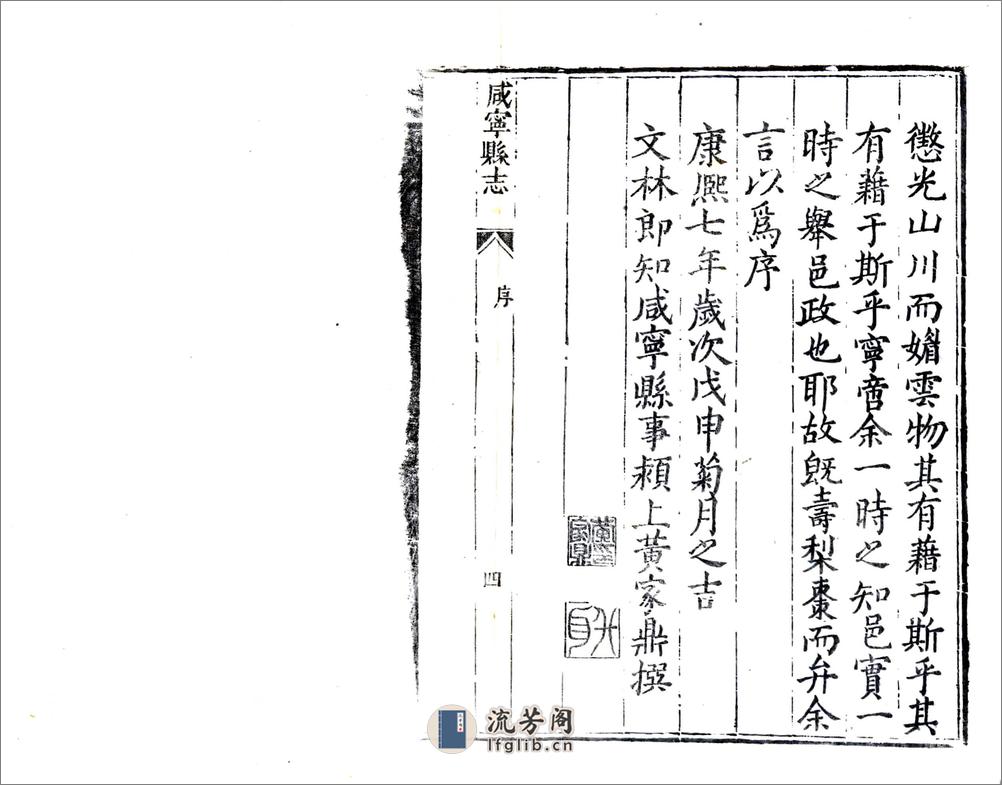 懲光山川而媚雲物其有藉于斯乎其
有藉于斯乎寧啻余一時之知邑實一
時之舉邑政也耶故旣壽梨棗而弁余
言以爲序
康熈七年歲次戊申菊月之吉
文林郎知咸寧縣事頴上黃家鼎撰
咸寧縣志
序
四
流芳阁
lfglib.cn